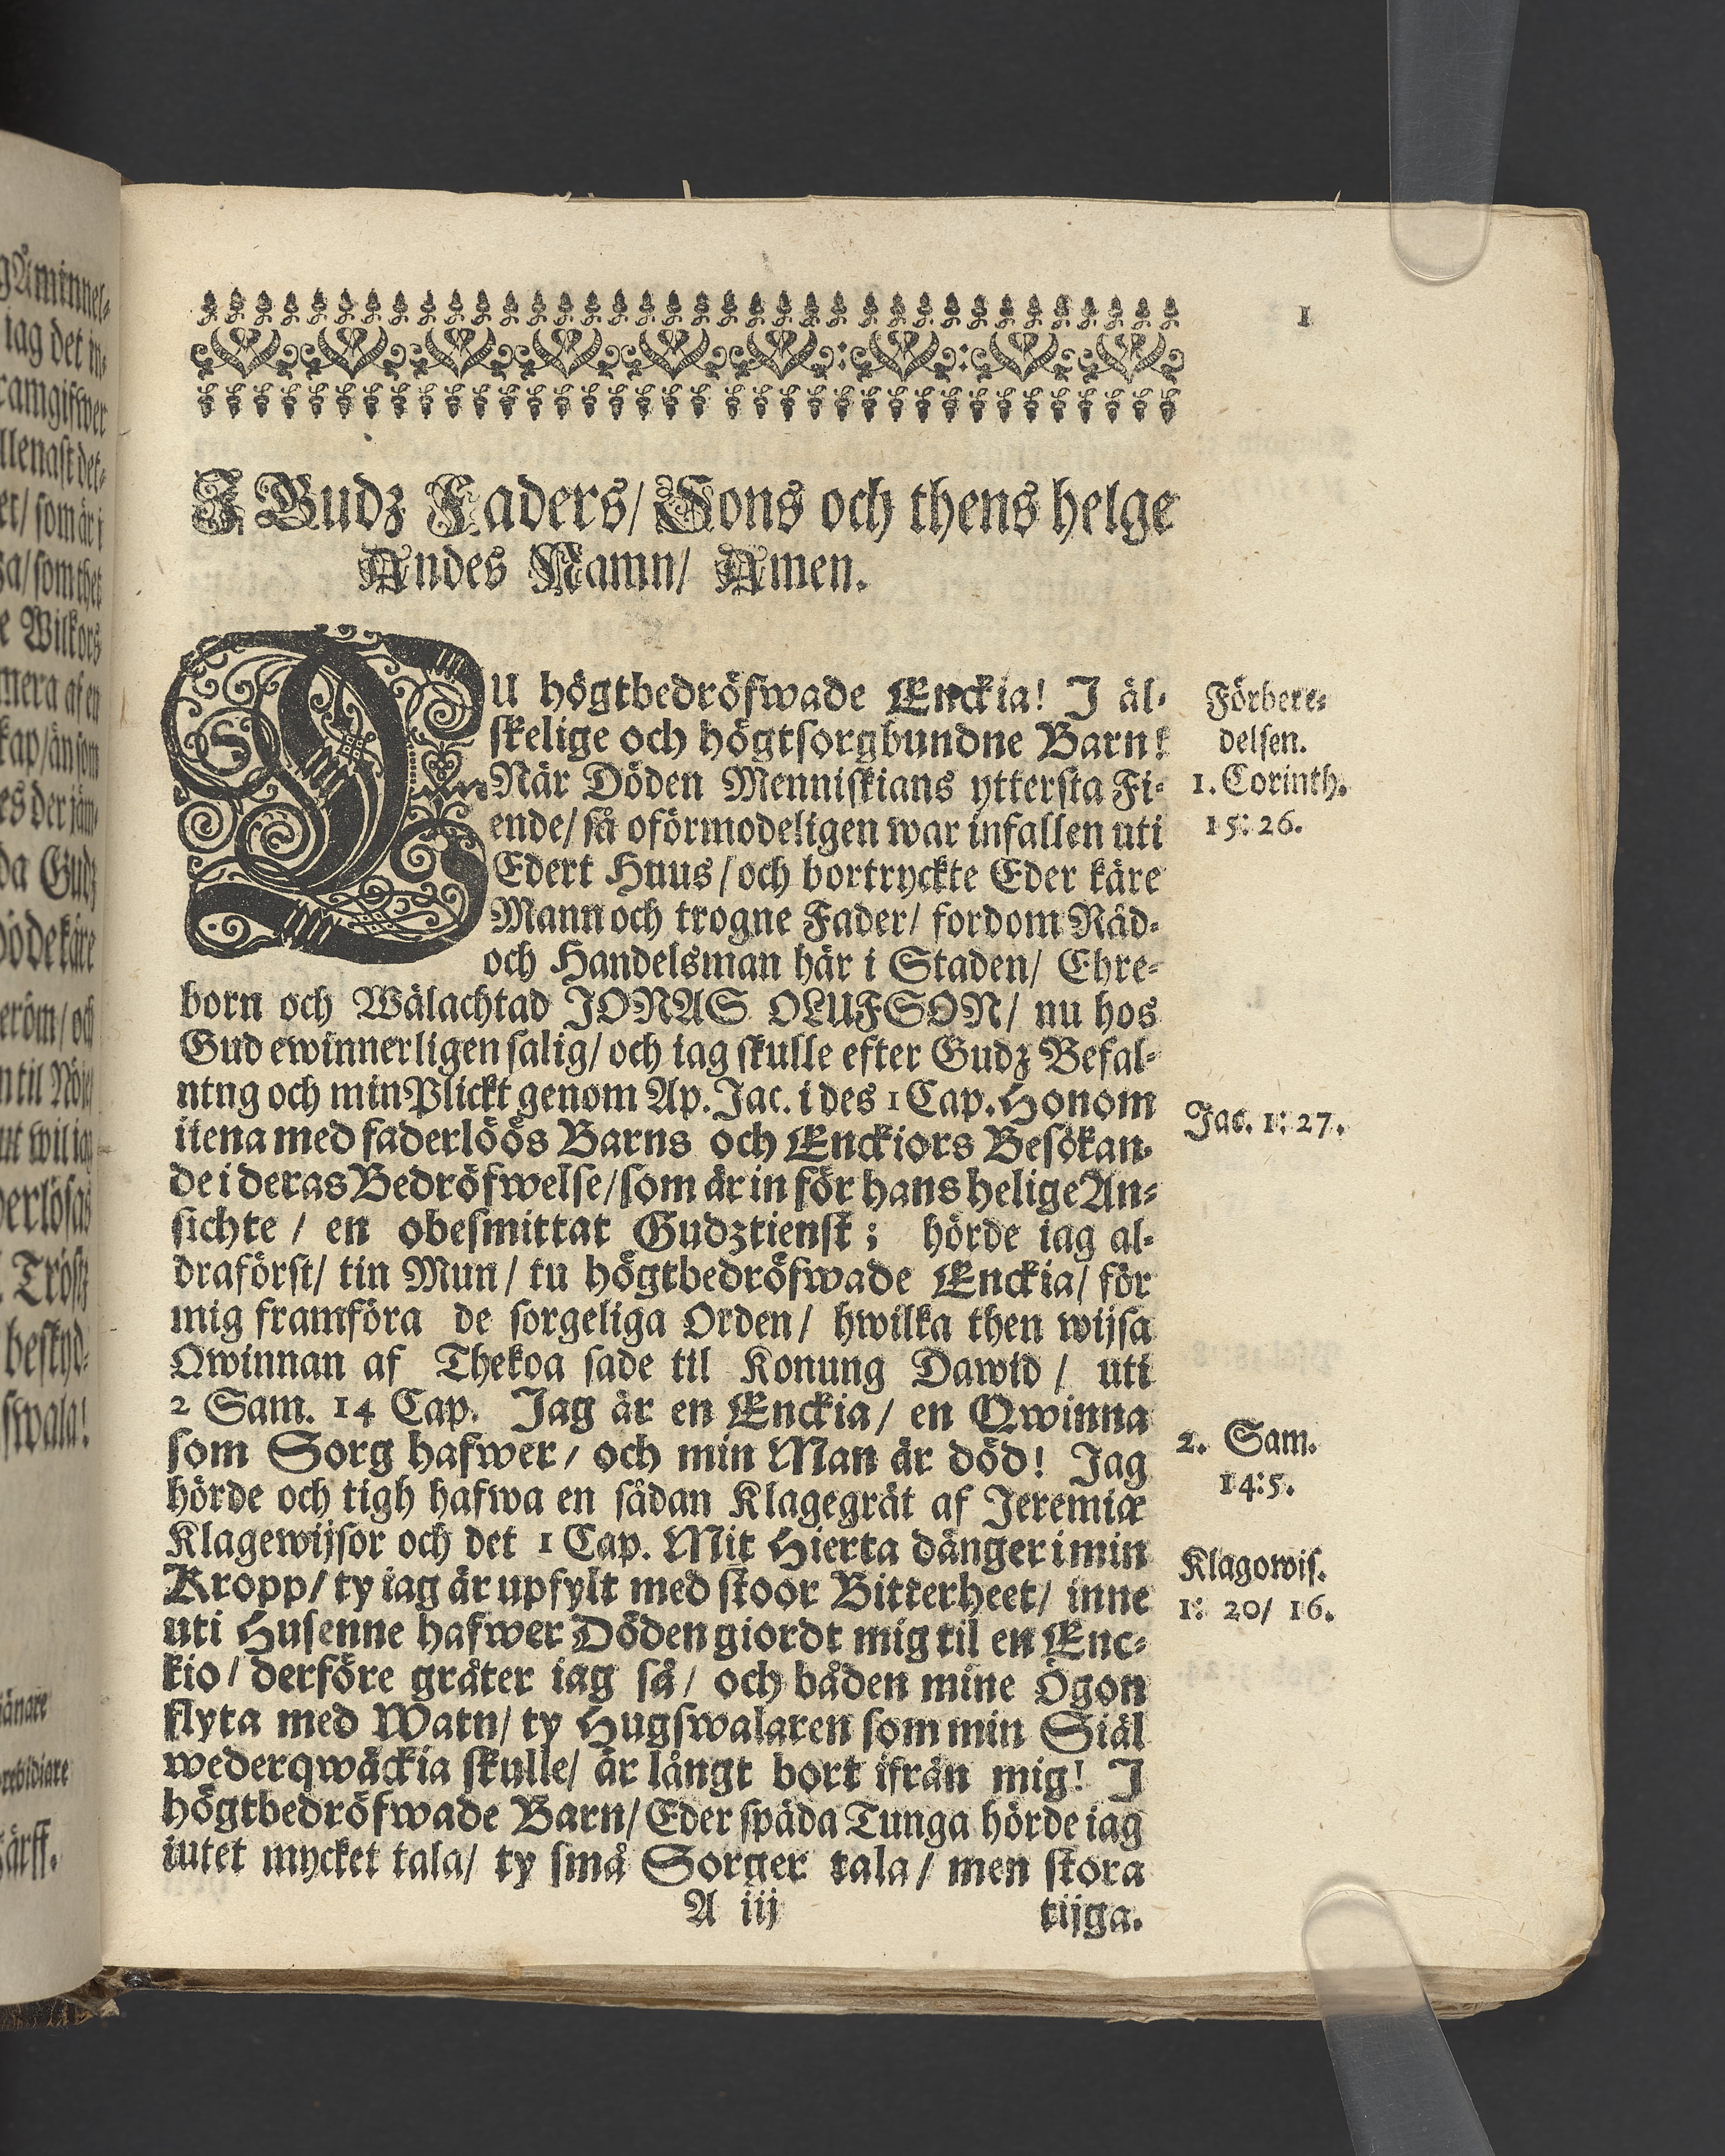 1
I Gudz Faders/ Sons och thens helge
Andes Namn/ Amen.
DU högtbedröfwade Enckia! I äl-
skelige och högtsorgbundne Barn!
När Döden Menniskians yttersta Fi-
ende/ så oförmodeligen war infallen uti
Edert Huus/ och bortryckte Eder käre
Mann och trogne Fader/ fordom Råd-
och Handelsman här i Staden/ Ehre-
born och Wälachtad JONAS OLUFSON/ nu hos
Gud ewinnerligen salig/ och iag skulle efter Gudz Befal-
ntng och min Plickt genom Ap. Jac. i des 1 Cap. Honom
iiena med faderlöös Barns och Enckiors Besökan-
de i deras Bedröfwelse/ som är in för hans helige An-
sichte / en obesmittat Gudztienst; hörde iag al-
draförst/ tin Mun/ tu högtbedröfwade Enckia/ för
mig framföra de sorgeliga Orden/ hwilka then wijsa
Qwinnan af Thekoa sade til Konung Dawid / uti
2 Sam. 14 Cap. Jag är en Enckia/ en Qwinna
som Sorg hafwer/ och min Man är död! Jag
hörde och tigh hafwa en sådan Klagegråt af Jeremiæ
Klagewijsor och det 1 Cap. Mit Hierta dänger i min
Kropp/ ty iag är upfylt med stoor Bitterheet/ inne
uti Husenne hafwer Döden giordt mig til en Enc-
kio/ derföre gråter iag så/ och båden mine Ögon
flyta med Watn/ ty Hugswalaren som min Siäl
wederqwäckia skulle/ är långt bort ifrån mig! I
högtbedröfwade Barn/ Eder späda Tunga hörde iag
iutet mycket tala/ ty små Sorger tala/ men stora
A iij tijga.
Förbere-
delsen.
1. Corinth.
15: 26.
Jac. 1: 27.
2. Sam.
14: 5.
Klagowis.
1: 20/ 16.